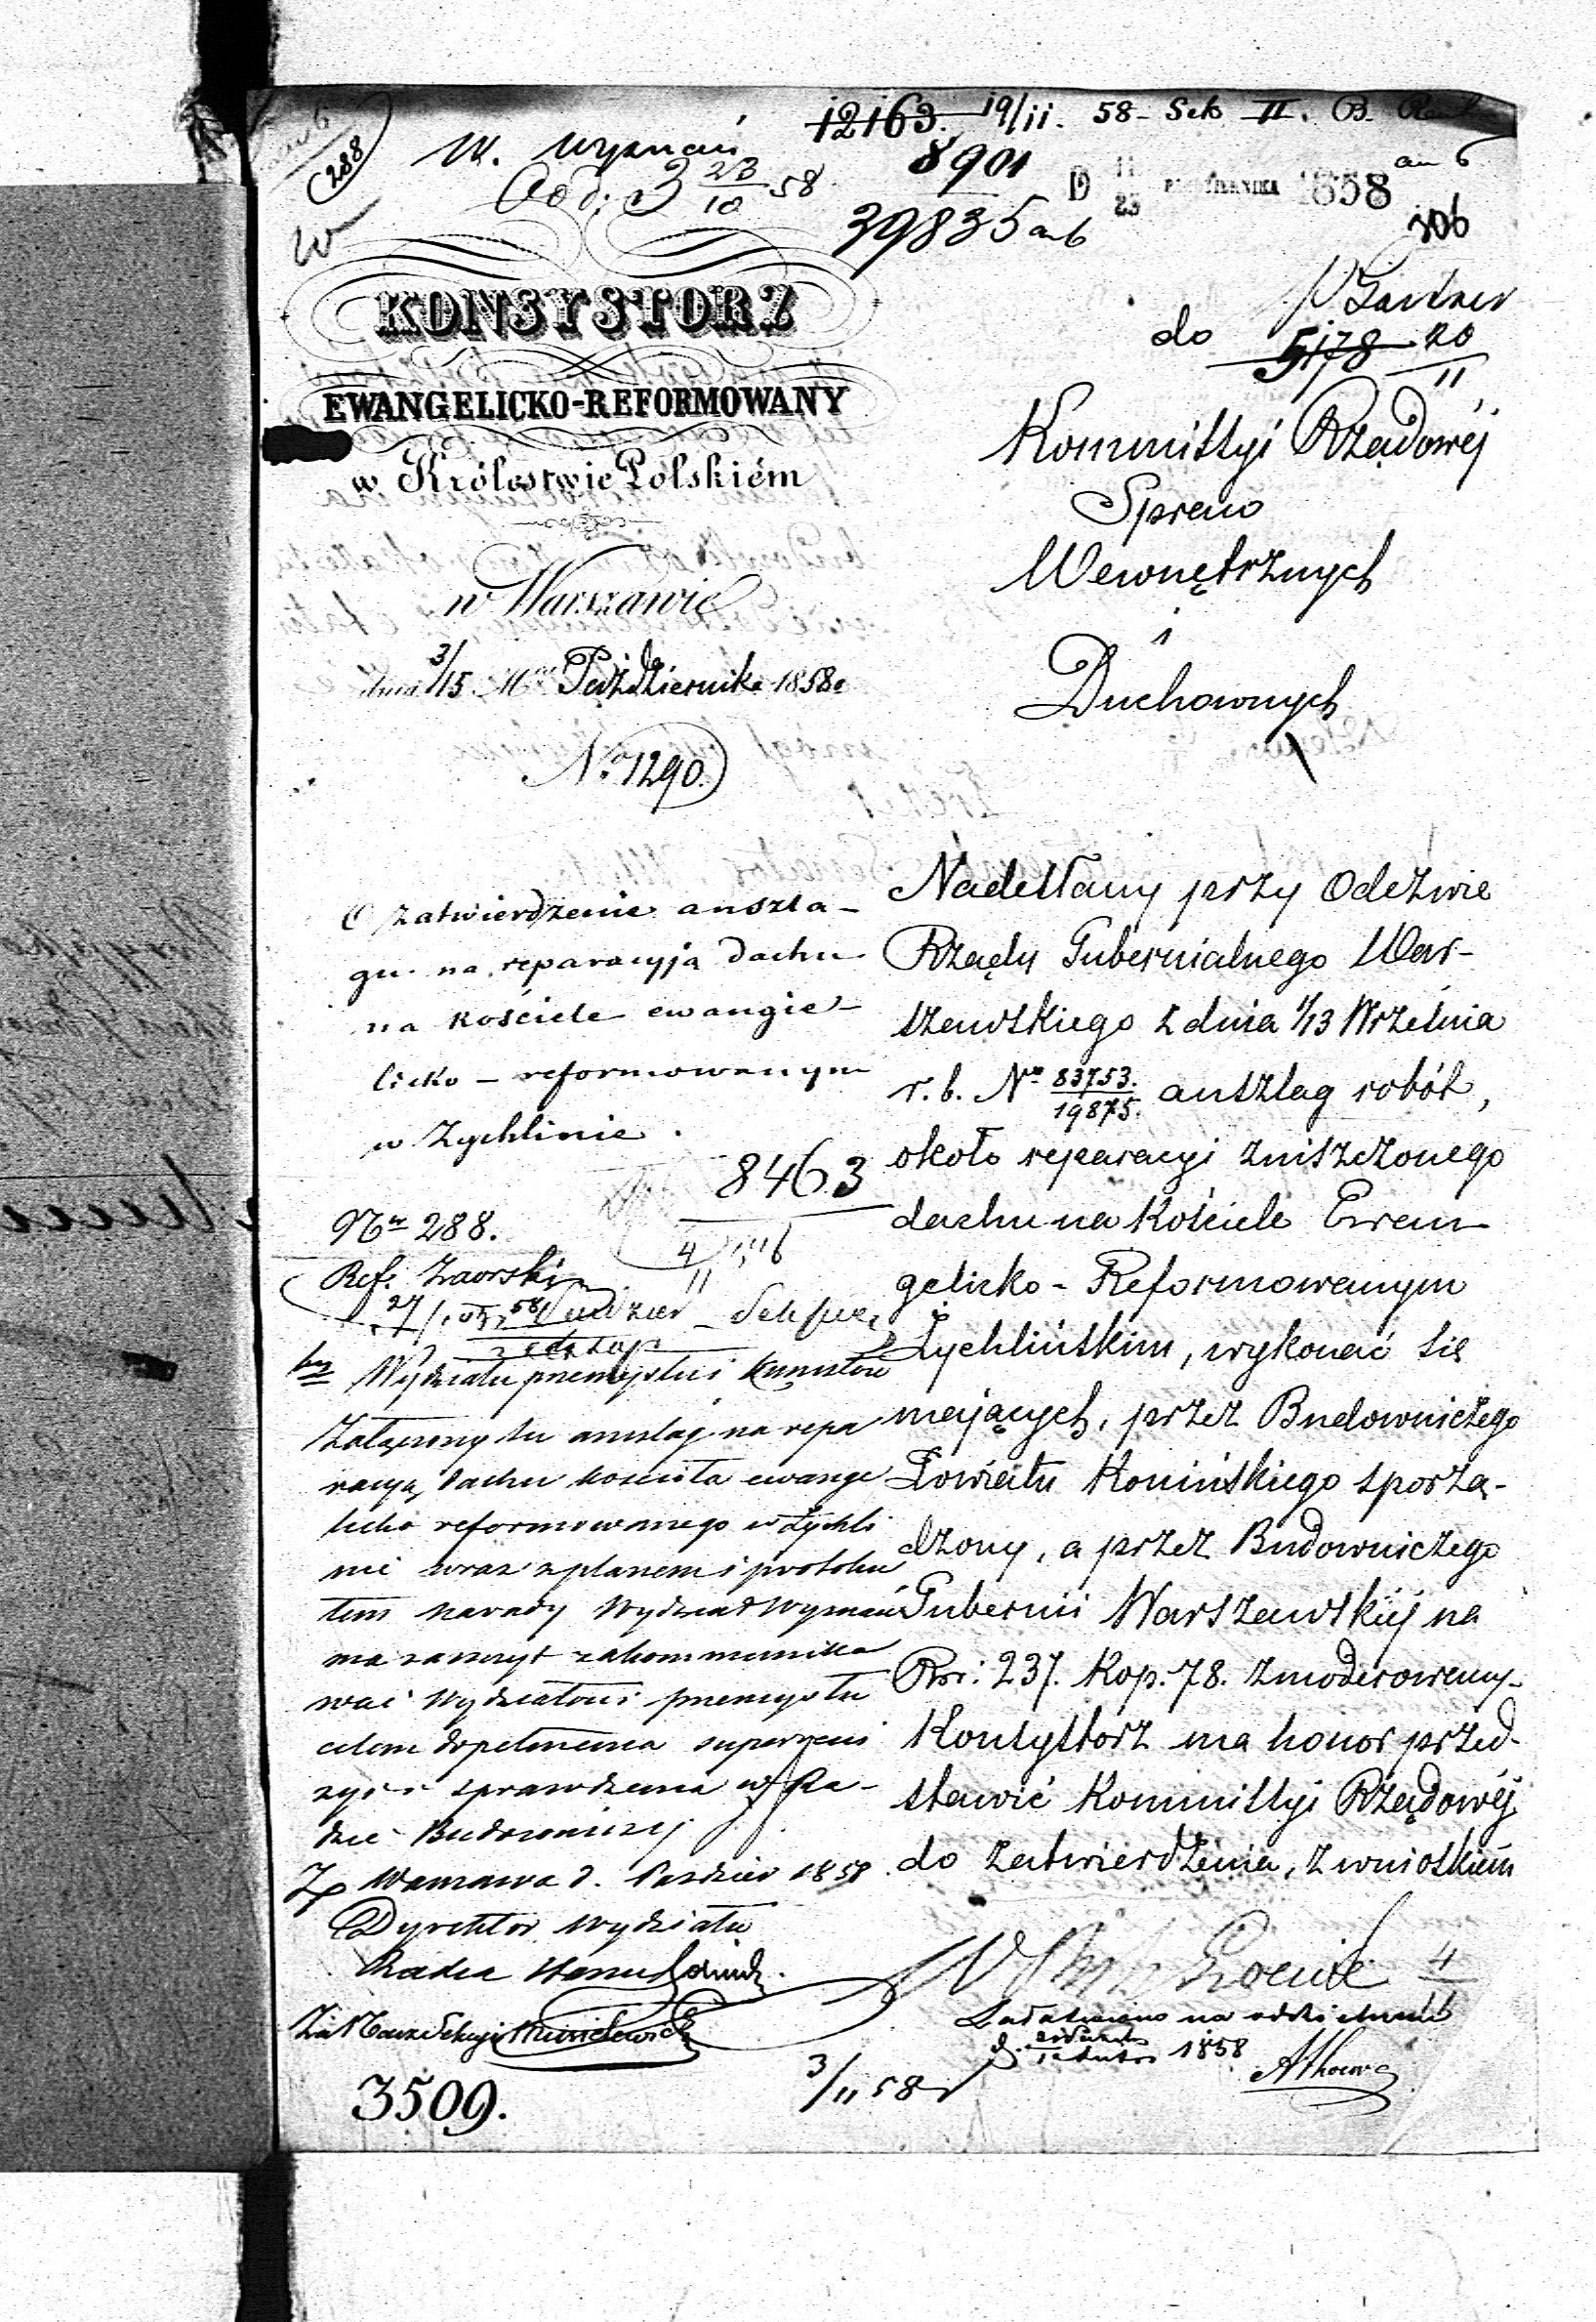 12163. 19/11. 58 - Sek II. B.
W. Wyznań
8901
Od: 3 23/10 58
D 11/23 PAŹDZIERNIKA 1858
39835
306
288
KONSYSTORZ
EWANGELICKO-REFORMOWANY
w Królestwie Polskiém
w Warszawie
dnia 3/15 Mca Października 1858.
No 1290.
do
5178 20/11
Kommissyi Rządowéj
Spraw
Wewnętrznych
i
Duchownych
O zatwierdzenie anszla-
gu na reparacyją dachu
na kościele ewangie-
licko - reformowanym
w Żychlinie.
8463
4/11
No 288.
Ref. Zaorski
Wydziału przemysłu i Kunsztów
Załączony tu anszlag na repa
racyą dachu kościoła ewange
licko reformowanego w Żychli
nie wraz z planem i protoku
łem narady Wydział Wyznań
ma zaszczyt zakommuniko
wać Wydziałowi przemysłu
celem dopełnienia superrewi
zyi i sprawdzenia w Ra-
dzie Budowniczej
Warszawa d. Paździer 1858
Dyrektor Wydziału
Radca Stanu
3509.
Nadesłany przy Odezwie
Rządu Gubernialnego War-
szawskiego z dnia 1/13 Września
r. b. No 83753./19875. anszlag robót,
około reparacyi zniszczonego
dachu na Kościele Ewan-
gelicko - Reformowanym
Żychlińskim, wykonać się
mających, przez Budowniczego
Powiatu Konińskiego sporzą-
dzony, a przez Budowniczego
Gubernii Warszawskiéj na
Rsr: 237. Kop. 78. zmoderowany-
Konsystorz ma honor przed-
stawić Kommissyi Rządowéj
do zatwierdzenia, z wnioskiem
4/11
1858
3/11 58